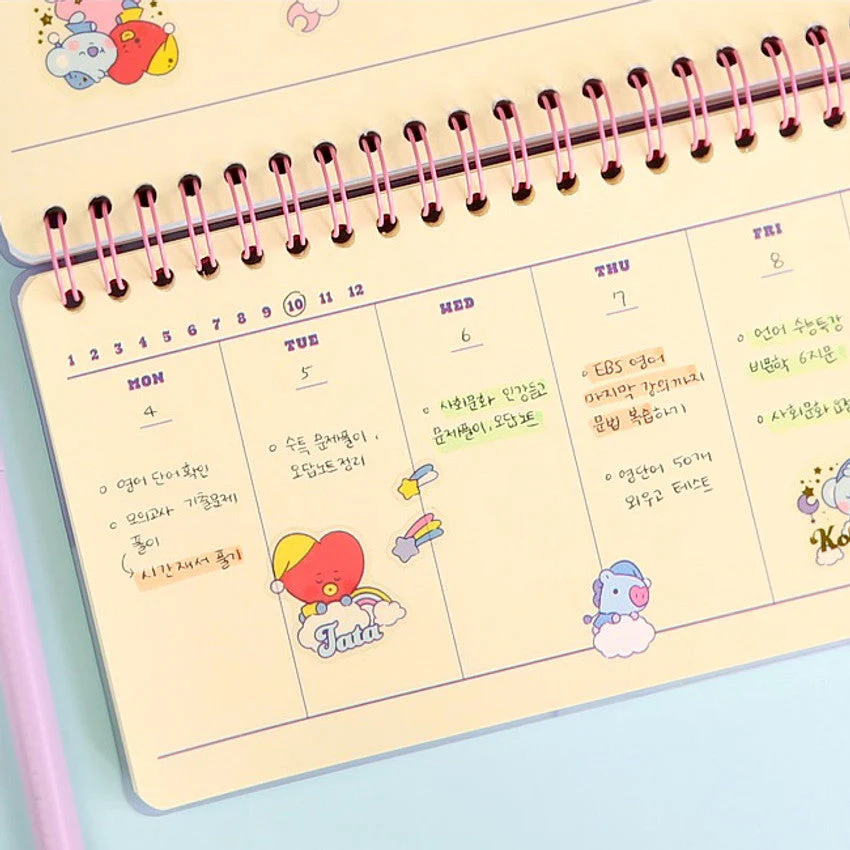 1 2 3 4 5 6 7 8 9 10 11 12
MON
4
영어 단어 확인
모의고사 기출문제
풀이
시간 재서 풀기
TUE
5
수특 문제풀이,
오답노트 정리
Tata
WED
6
사회문화 인강듣고
문제풀이, 오답노트
THU
7
EBS 영어
마지막 강의까지
문법 복습하기
영단어 50개
외우고 테스트
FRI
8
언어 수능특강
비문학 6지문
사회문화
Ko